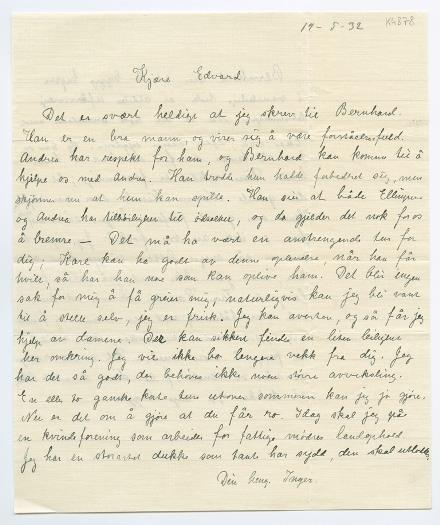 14-5-32
K4878
Kjære Edvard
Det er svært heldige at jeg skrev til Bernhard.
Han er en bra mann, og viser sig å være forståelsesfuld.
Andrea har respekt for ham, og Bernhard kan komme til å
hjelpe os med Andrea. Han trodde hun hadde forbedret sig, men
skjønner nu at hun kan spille. Han sier at både
og Andrea har tilbøieligheter til og da gjelder det nok for os
å bremse — Det må ha vært en anstrengende tur for
dig; Kare kan ha godt av denne oplevelse, når han får
hvile, så har han noe som kan oplive ham. Det blir ingen
sak for mig å få greie mig, naturligvis kan jeg bli vant
til å stelle selv, jeg er frisk. Jeg kan avertere, og så får jeg
hjelp av damerne. Der kan sikkert findes en liten leilighet
her omkring. Jeg vil ikke bo lengere vekk fra dig. Jeg
har det så godt, den behøves ikke noen større avveksling.
En eller to ganske korte ture utover sommeren kan jeg jo gjøre.
Nu er det om å gjøre at du får ro. Idag skal jeg på
en kvindeforening som arbeider for fattige mødres landophold.
Jeg har en storartet dukke som tante har sydd, den skal utloddes
Din heng. Inger.